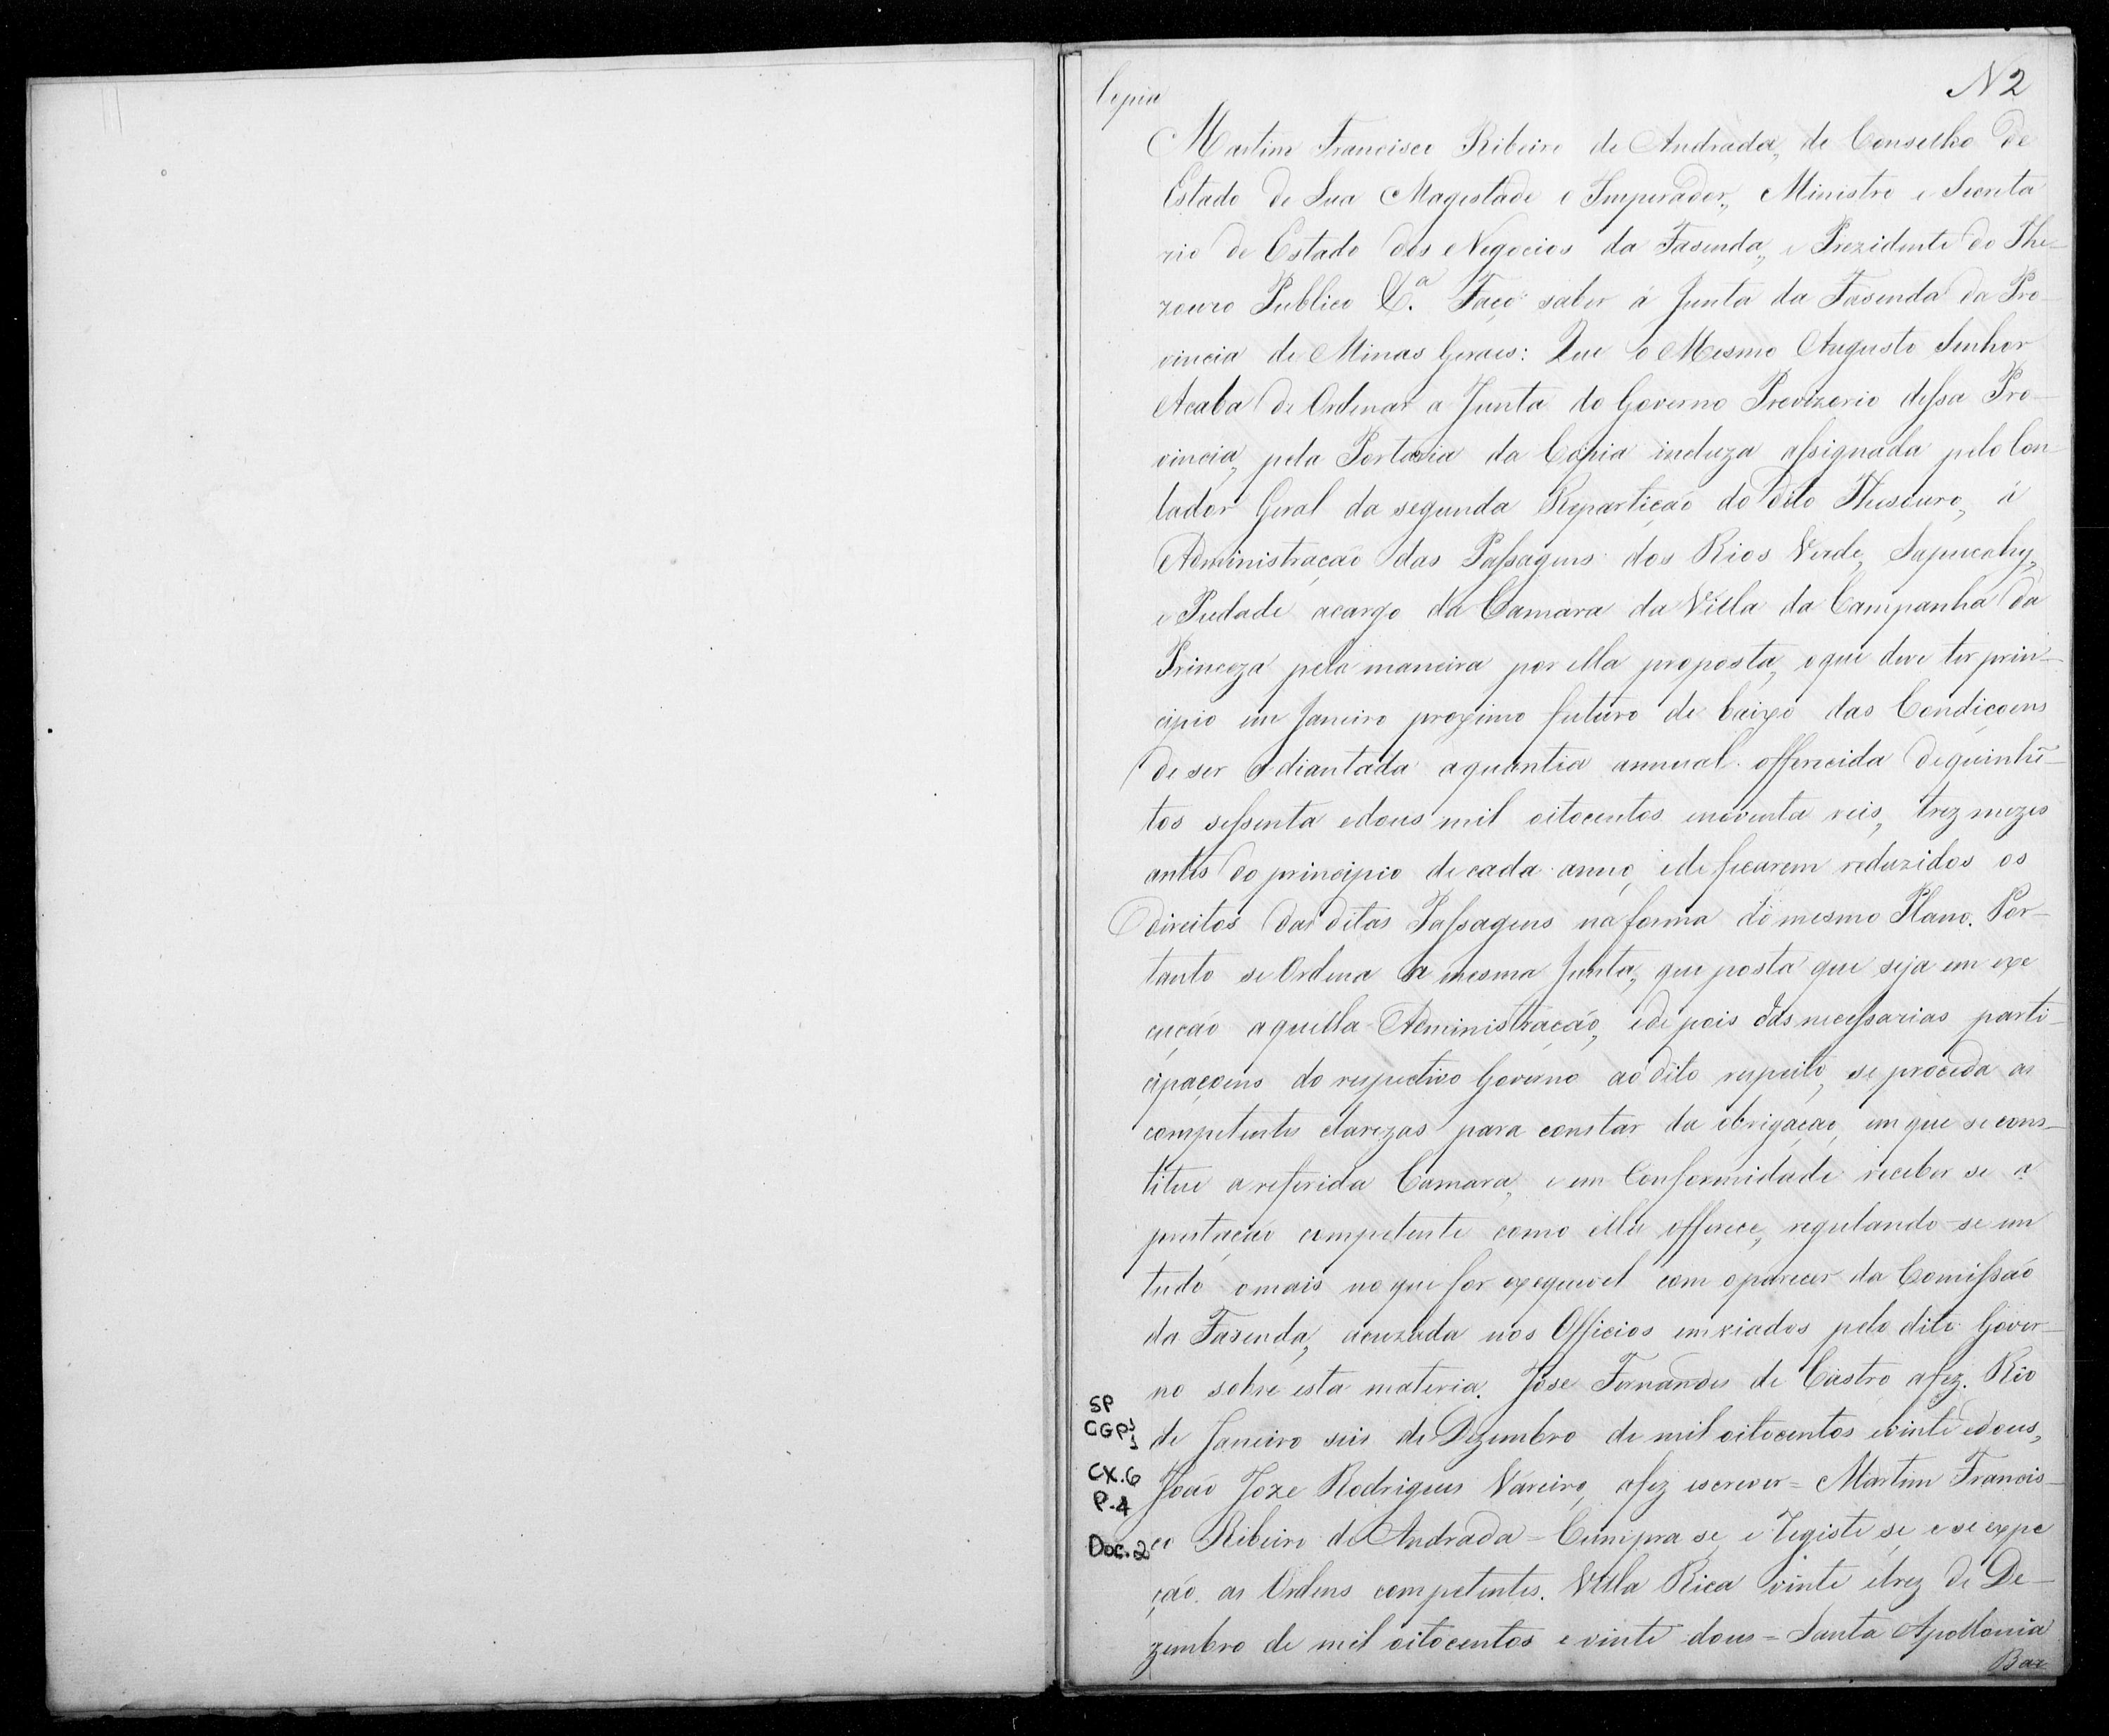 Copia
N 2
Martim Francisco Ribeiro de Andrada, do Conselho de
Estado de Sua Magestade o Imperador, Ministro e Secreta
rio de Estado dos Negocios da Fasenda, e Prezidente do The-
zouro Publico &.ª Faço saber á Junta da Fasenda da Pro-
vincia de Minas Geraes: Que o Mesmo Augusto Senhor
Acaba de Ordenar a Junta do Governo Provizorio dessa Pro-
vincia, pela Portaria da Copia incluza assignada pelo Con-
tador Geral da segunda Repartição do dito Thesouro, á
Administração das Passagens dos Rios Verde, Sapucahy,
e Piedade acargo da Camara da Villa da Campanha da
Princeza pela maneira por ella proposta, oque deve ter prin-
cipio em Janeiro proximo futuro de baixo das Condiçoens
de ser adiantada aquantia annual offerecida dequinhẽ-
tos sessenta edous mil oitocentos enoventa reis, trez mezes
antes do principio de cada anno, ede ficarem reduzidos os
direitos das ditas Passagens na forma do mesmo Plano. Por-
tanto se Ordena a mesma Junta, que posta que seja em exe
cução aquella Administração, ede pois das necessarias parti-
cipaçoens do respectivo Governo ao dito respeito, se proceda as
competentes clarezas para constar da obrigação, em que se cons-
titue a referida Camara, e em Conformidade receber se a
prestação competente como ella offerece, regulando-se em
tudo omais no que for exequivel com oparecer da Comissão
da Fazenda, acuzada nos Officios enviados pelo dito Gover-
no sobre esta materia. Jose Fernandes de Castro afez. Rio
de Janeiro seis de Dezembro de mil oitocentos evinte edous,
João Joze Rodrigues Vareiro, afez escrever = Martim Francis-
co Ribeiro de Andrada = Cumpra se, e Registe se, e se expe
ção as Ordens competentes. Villa Rica vinte etrez de De-
zembro de mil oitocentos e vinte dous = Santa Apollonia
Bar
SP
CGP¹
1
CX.6
P.4
Doc.2